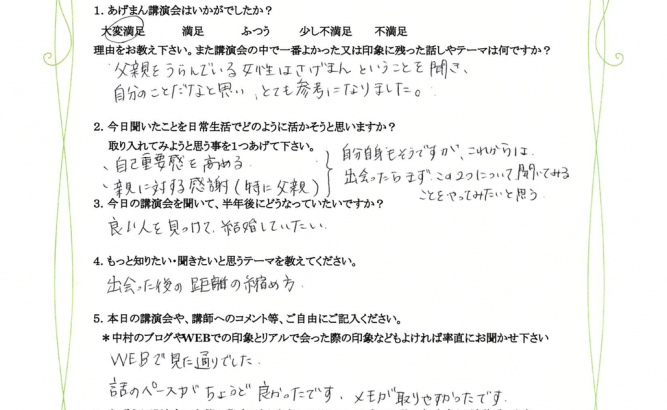 1. あげまん講演会はいかがでしたか?
大変満足 満足 ふつう 少し不満足 不満足
理由をお教え下さい。また講演会の中で一番よかった又は印象に残った話しやテーマは何ですか?
父親をうらんでいる女性はさげまん ということを聞き、
自分のことだなと思い、とても参考になりました。
2. 今日聞いたことを日常生活でどのように活かそうと思いますか?
取り入れてみようと思う事を1つあげて下さい。
、自己重要感を高める
、親に対する感謝(特に父親)
自分自身もそうですが、これからは
出会ったらまず、この2つについて聞いてみる
ことをやってみたいと思う。
3. 今日の講演会を聞いて、半年後にどうなっていたいですか?
良い人を見つけて、結婚していたい。
4. もっと知りたい・聞きたいと思うテーマを教えてください。
出会った後の距離の縮め方.
5. 本日の講演会や、講師へのコメント等、ご自由にご記入ください。
＊中村のブログやWEBでの印象とリアルで会った際の印象などもよければ率直にお聞かせ下さい
WEBで見た通りでした.
話のペースがちょうど良かったです. メモが取りやすかったです.